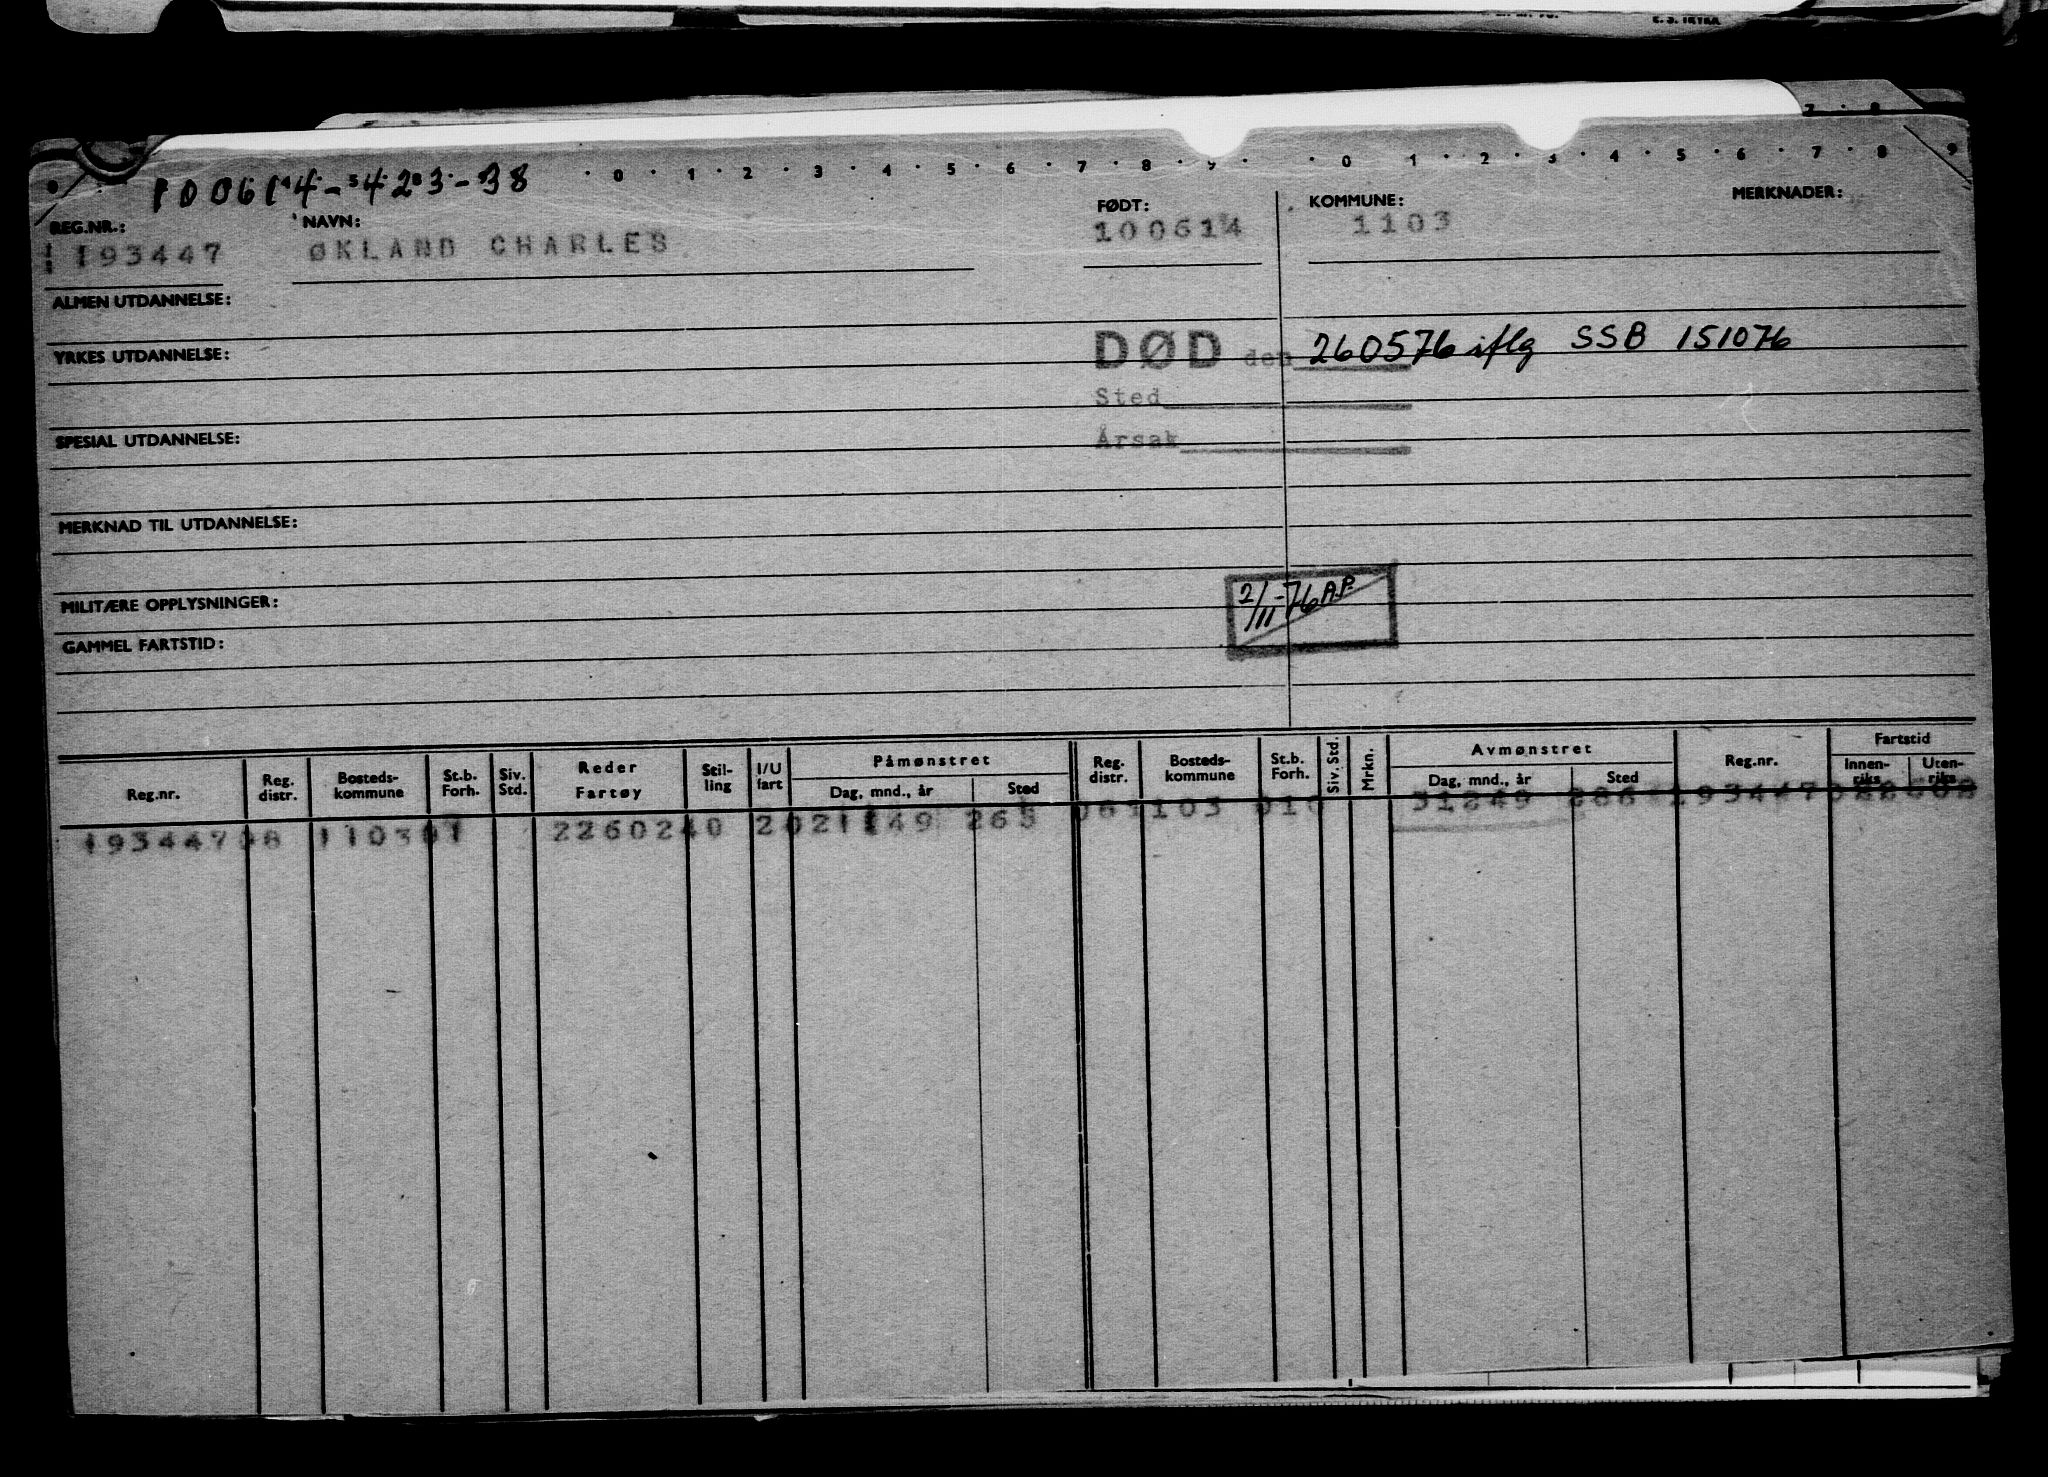 E. S. IRTKA
7 · 8
0 · 1 · 2 · 3 · 4 · 5 · 6 · 7 · 8 · 9 · · 0 1 · 2 · 3 · 4 · 5 · 6 · 7 · 8 9
100614-423-38
REG.NR.: NAVN: FØDT: KOMMUNE: MERKNADER:
193447 ØKLAND CHARLES 100614 1103
ALMEN UTDANNELSE:
YRKES UTDANNELSE:
DØD den 260576 iflg SSB 151076
Sted
SPESIAL UTDANNELSE:
Årsak
MERKNAD TIL UTDANNELSE:
MILITÆRE OPPLYSNINGER:
2/11-76 A.P.
GAMMEL FARTSTID:
Reg.nr. Reg. distr. Bosteds-kommune St.b. Forh. Siv. Std. Reder Fartøy Stil-ling I/U fart Påmønstret Dag, mnd., år Sted Reg. distr. Bosteds-kommune St.b. Forh. Siv. Std. Mrkn. Avmønstret Dag, mnd., år Sted Reg.nr. Fartstid Innen-riks Uten-riks
193447 08 1103 01 2260240 2 021149 265 1103 31249 193447